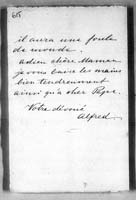 il aura une foule
de monde.
adieu chère Maman
je vous baise les mains
bien tendrement
ainsi qu'à cher Papa.
Votre dévoué
Alfred.